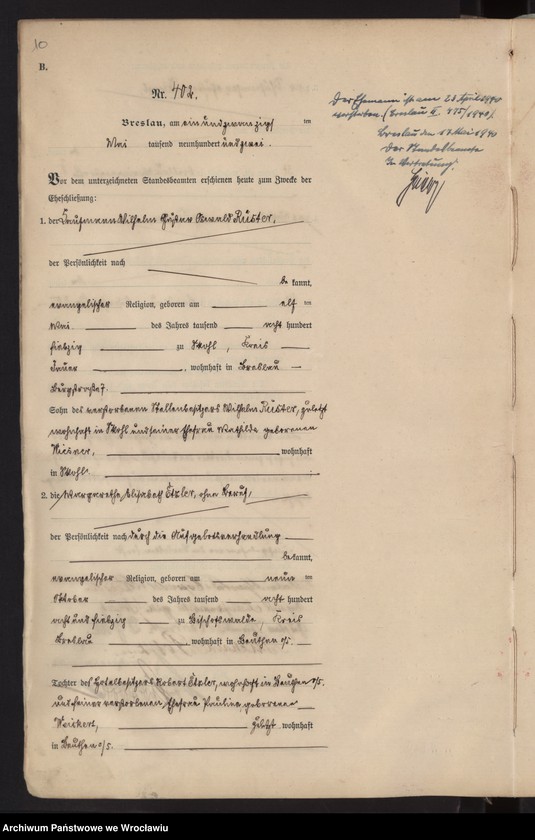 10
B.
Nr. 402.
Breslau, am einundzwanzigsten
Mai tausend neunhundert und zwei.
Vor dem unterzeichneten Standesbeamten erschienen heute zum Zwecke der
Eheschließung:
1. der Kaufmann Wilhelm Gustav Oswald Rüster,
der Persönlichkeit nach
be kannt,
evangelischer Religion, geboren am elf ten
Mai des Jahres tausend acht hundert
siebzig zu Skohl, Kreis
Jauer, wohnhaft in Breslau
Bergstraße 7.
Sohn des verstorbenen Stellenbesitzers Wilhelm Rüster, zuletzt
wohnhaft in Skohl und seiner Ehefrau Mathilde geborenen
wohnhaft
in Skohl.
2. die Margarethe Elisabeth ohne Beruf,
der Persönlichkeit nach durch die Aufgebotsverhandlung
be kannt,
evangelischer Religion, geboren am neun ten
Oktober des Jahres tausend acht hundert
acht und siebzig zu Bischofswalde, Kreis
Breslau, wohnhaft in Beuthen o/S.
Tochter des Hotelbesitzers Robert wohnhaft in Beuthen o/S.
und seiner verstorbenen Ehefrau Pauline geborenen
zuletzt wohnhaft
in Beuthen o/S.
Der Ehemann ist am 28 April 1940
verstorben. (Breslau II. 875/1940).
Breslau den 17 Mai 1940
Der Standesbeamte
In Vertretung:
Archiwum Państwowe we Wrocławiu